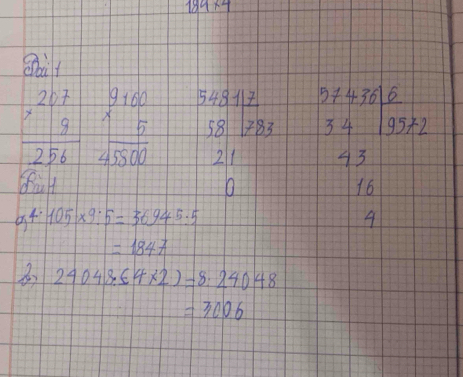 189 x 4
Bài 1
207 9160 5481 7 57436 6
x 8 x 5 58 783 34 9572
256 45800 21 43
Bài 1 0 16
105 x 9 : 5 = 36945 : 5 4
= 1847
24048 : (4 x 2) = 8 : 24048
= 3006